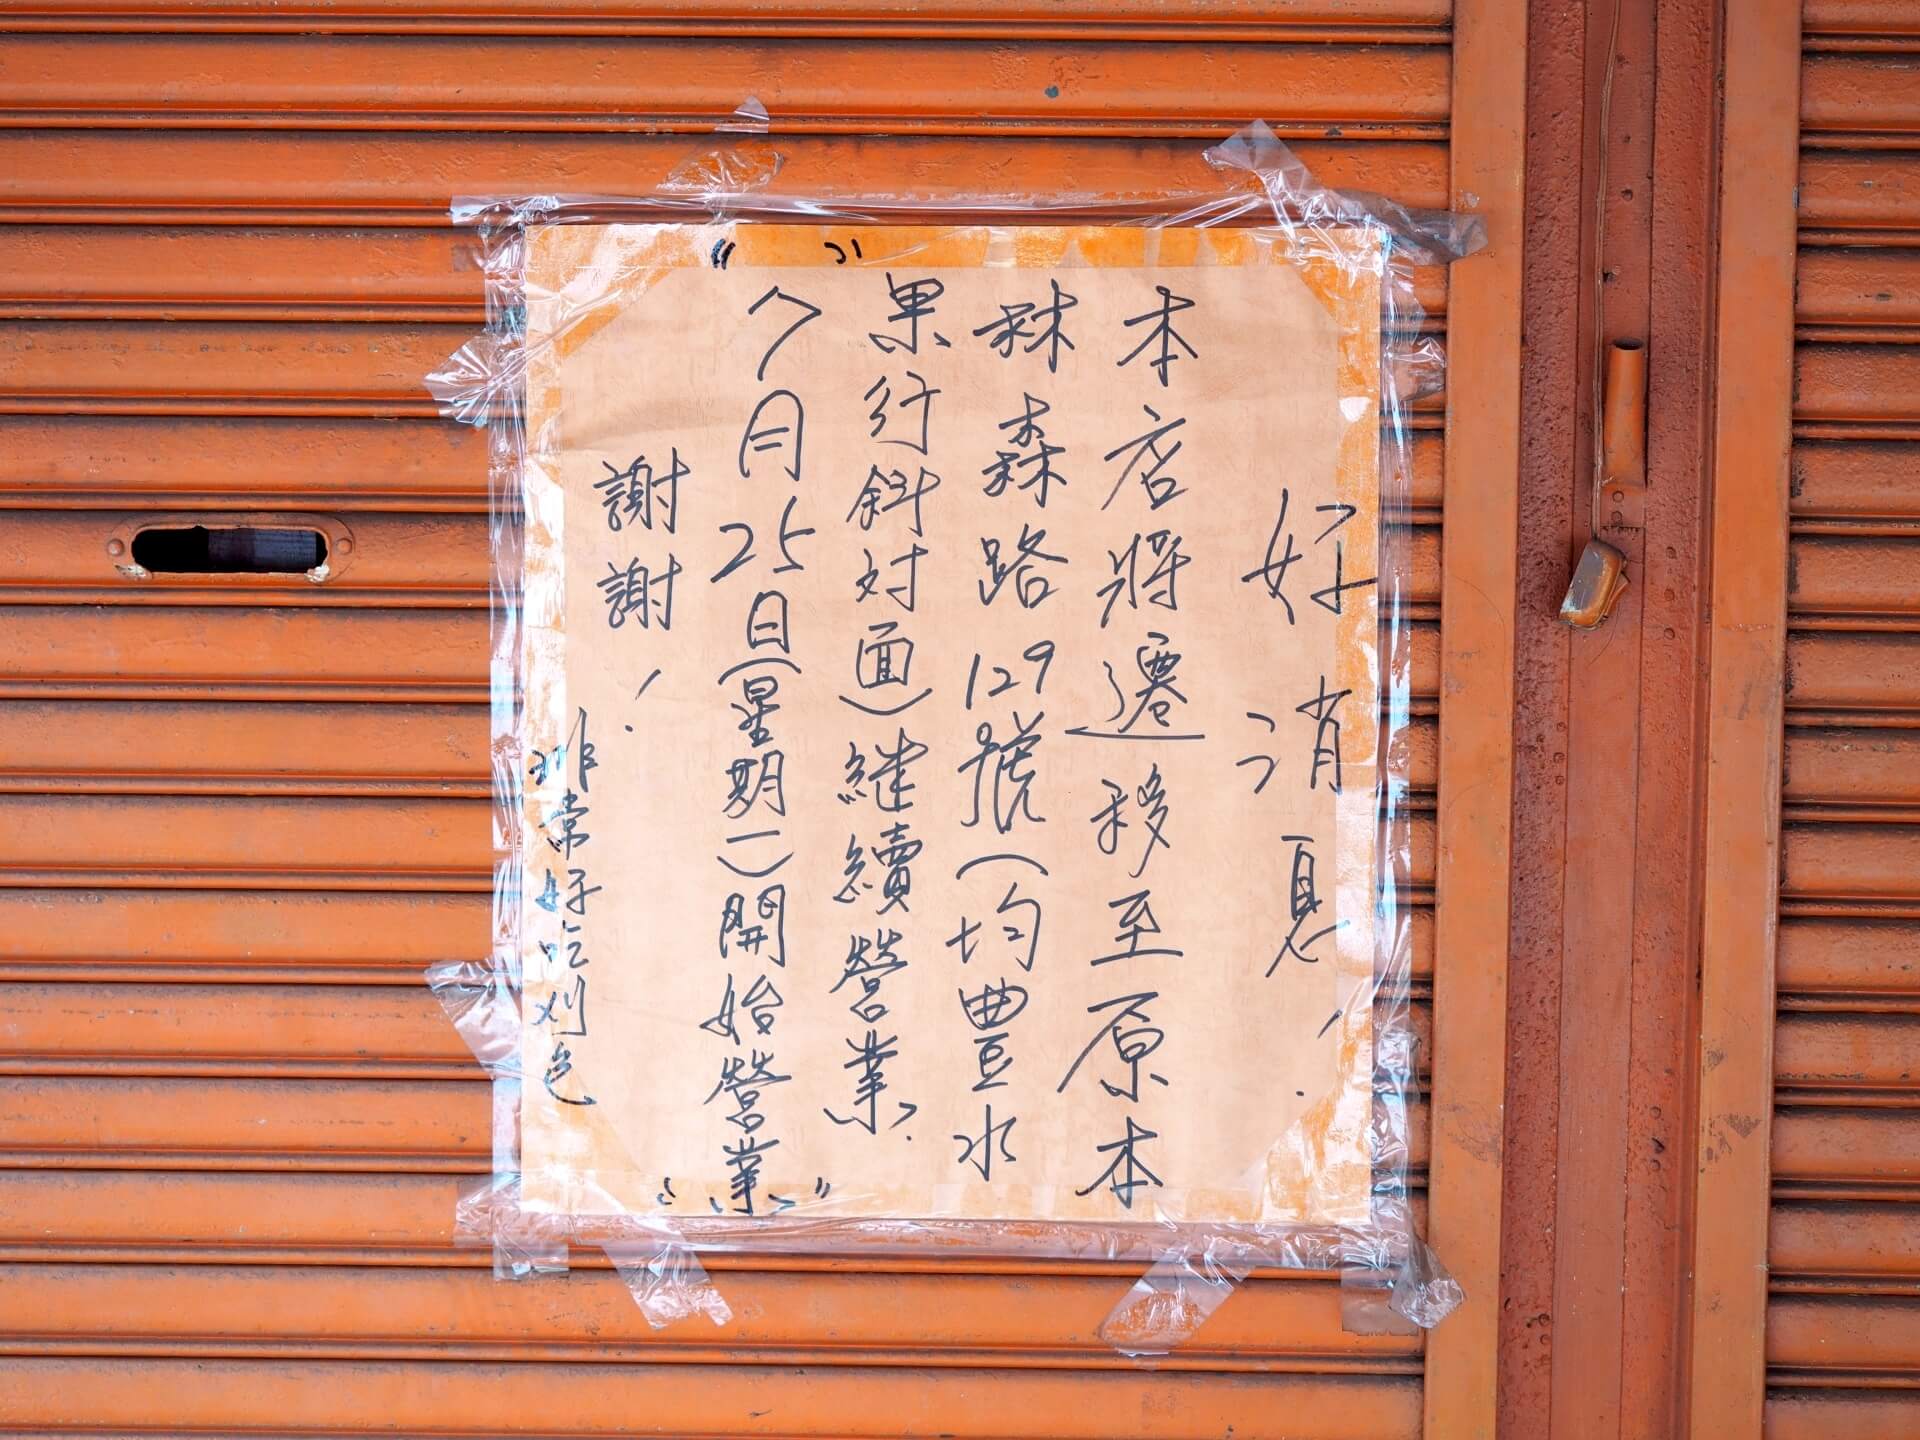 好消息！
本店將遷移至原本
林森路129號(均豊水
果行斜対面)継續營業.
"7月25日(星期一)開始營業"
謝謝！
非常好吃刈包